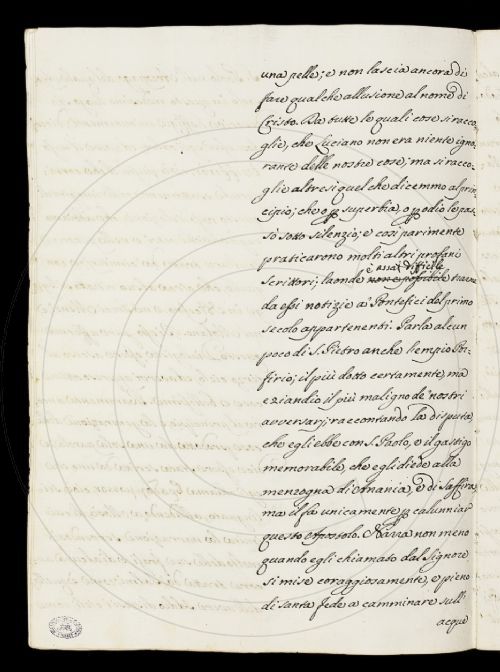 una pelle; e non lascia ancora di
fare qualche allusione al nome di
Cristo. Da tutte le quali cose si racco-
glie, che Luciano non era niente igno-
rante delle nostre cose; ma si racco-
glie altresì quel che dicemmo al prin-
cipio; che o p superbia, o p odio le pas-
sò sotto silenzio; e così parimente
praticarono molti altri profani
è assai difficile
Scrittori; laonde non è possibile trarre
da essi notizie a' Pontefici del primo
secolo appartenenti. Parla alcun
poco di S. Pietro anche l'empio Por-
firio; il più dotto certamente, ma
eziandio il più maligno de' nostri
avversarj; raccontando la disputa,
che egli ebbe con S. Paolo, e il gastigo
memorabile, che egli diede alla
menzogna di Anania, e di Saffira;
ma il fa unicamente p calunniar
questo Apostolo. Narra non meno
quando egli chiamato dal Signore
si mise coraggiosamente, e pieno
di santa fede a camminare sull'
acque